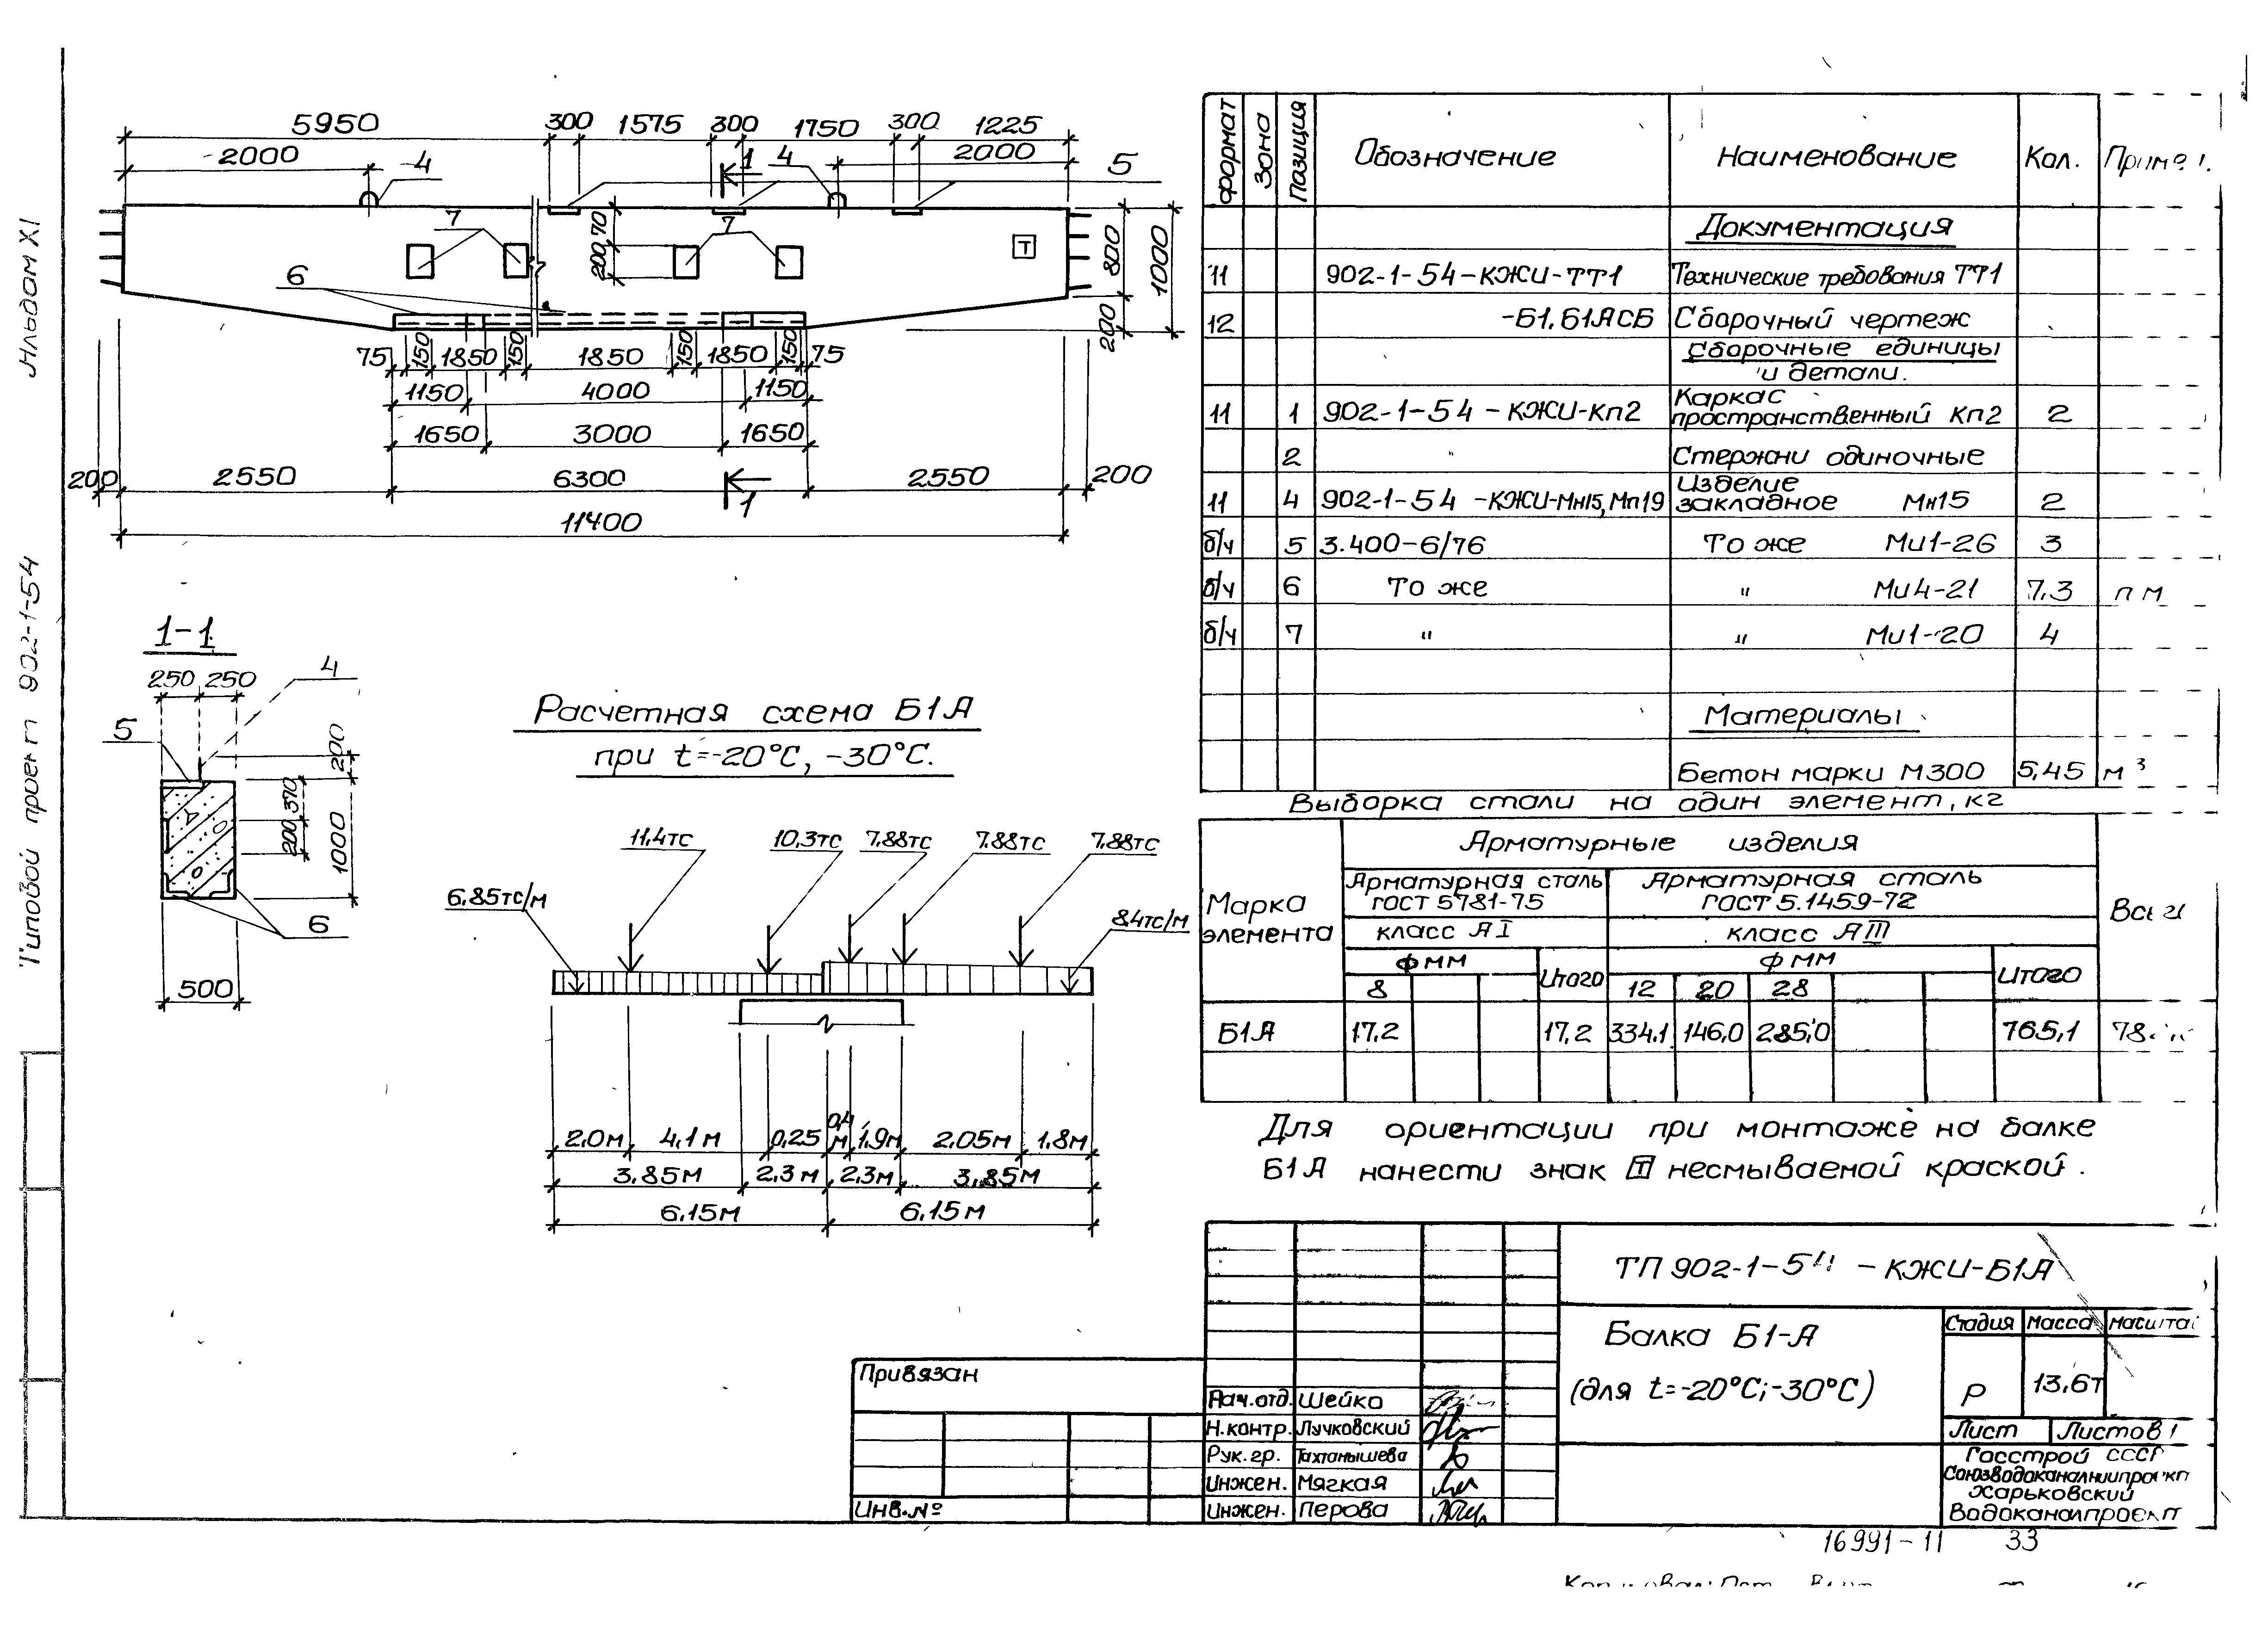 Альбом XI
Типовой проект 902-1-54
5950
300
1575
300
1750
300
1225
2000
4
1
4
2000
5
7
70
200
7
Т
800
1000
200
6
75
150
1850
150
1850
150
1850
150
75
1150
4000
1150
1650
3000
1650
200
2550
6300
2550
200
1
11400
1-1
250
250
4
5
200
370
200
1000
6
500
Расчетная схема Б1А
при t=-20°С, -30°С.
11.4тс
10.3тс
7.88тс
7.88тс
7.88тс
6.85тс/м
8.4тс/м
2.0м
4.1м
0.25
0.4
м
1.9м
2.05м
1.8м
3.85м
2.3м
2.3м
3.85м
6.15м
6.15м
формат
Зона
Позиция
Обозначение
Наименование
Кол.
Документация
11
902-1-54-КЖИ-ТТ1
Технические требования ТТ1
12
-Б1, Б1АСБ
Сборочный чертеж
Сборочные единицы
и детали.
11
1
902-1-54-КЖИ-Кп2
Каркас
пространственный Кп2
2
2
Стержни одиночные
11
4
902-1-54-КЖИ-Мн15, Мп19
Изделие
закладное Мн15
2
б/ч
5
3.400-6/76
То же
Ми1-26
3
б/ч
6
То же
"
Ми4-21
7.3
пм
б/ч
7
"
"
Ми1-20
4
Материалы
Бетон марки М300
5,45
м³
Выборка стали на один элемент, кг
Марка
элемента
Арматурные изделия
Арматурная сталь
ГОСТ 5781-75
Арматурная сталь
ГОСТ 5.1459-72
класс АI
класс АIII
Ф мм
Итого
Ф мм
Итого
8
12
20
28
Б1А
17.2
17,2
334.1
146,0
285,0
765,1
Для ориентации при монтаже на балке
Б1А нанести знак Т несмываемой краской.
ТП 902-1-54-КЖИ-Б1А
Балка Б1-А
(для t=-20°С; -30°С)
Стадия
Масса
Р
13,6т
Лист
Листов 1
Госстрой СССР
Союзводоканалниипроект
Харьковский
Водоканалпроект
Привязан
Инв.№
Нач.отд. Шейко
Н.контр. Лучковский
Рук.гр. Тахтанышева
Инжен. Мягкая
Инжен. Перова
16991-11 33